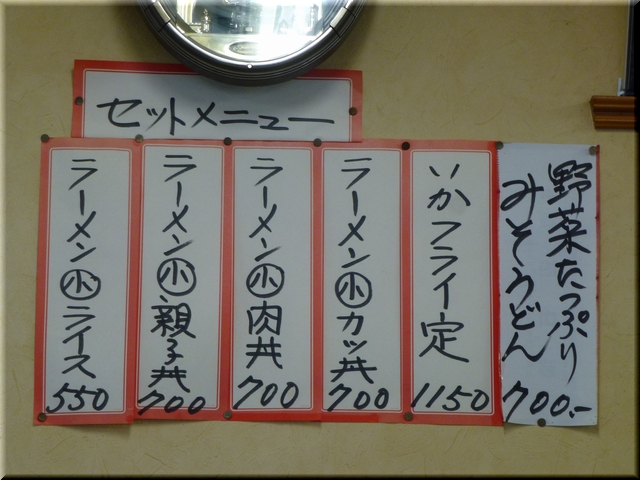 セットメニュー
野菜たっぷり
みそうどん
700.-
いかフライ定
1150
ラーメン小カツ丼
700
ラーメン小肉丼
700
ラーメン小親子丼
700
ラーメン小ライス
550